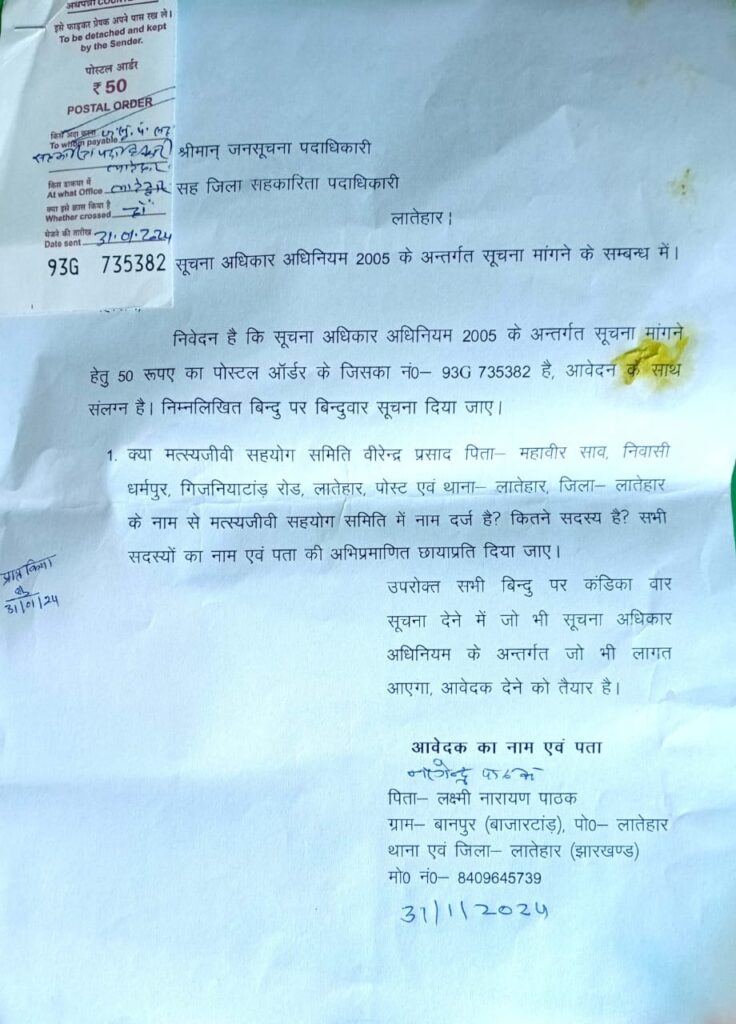 इसे फाड़कर प्रेषक अपने पास रख ले।
To be detached and kept
by the Sender.
पोस्टल आर्डर
₹ 50
POSTAL ORDER
To whom payable
At what Office लातेहार
क्या इसे क्रास किया है
Whether crossed हाँ
भेजने की तारीख
Date sent 31.01.2024
93G 735382
श्रीमान् जनसूचना पदाधिकारी
सह जिला सहकारिता पदाधिकारी
लातेहार।
सूचना अधिकार अधिनियम 2005 के अन्तर्गत सूचना मांगने के सम्बन्ध में।
निवेदन है कि सूचना अधिकार अधिनियम 2005 के अन्तर्गत सूचना मांगने
हेतु 50 रूपए का पोस्टल ऑर्डर के जिसका नं0– 93G 735382 है, आवेदन के साथ
संलग्न है। निम्नलिखित बिन्दु पर बिन्दुवार सूचना दिया जाए।
1. क्या मत्स्यजीवी सहयोग समिति वीरेन्द्र प्रसाद पिता– महावीर साव, निवासी
धर्मपुर, गिजनियाटांड़ रोड, लातेहार, पोस्ट एवं थाना– लातेहार, जिला– लातेहार
के नाम से मत्स्यजीवी सहयोग समिति में नाम दर्ज है? कितने सदस्य है? सभी
सदस्यों का नाम एवं पता की अभिप्रमाणित छायाप्रति दिया जाए।
प्राप्त किया
31/01/24
उपरोक्त सभी बिन्दु पर कंडिका वार
सूचना देने में जो भी सूचना अधिकार
अधिनियम के अन्तर्गत जो भी लागत
आएगा, आवेदक देने को तैयार है।
आवेदक का नाम एवं पता
नागेन्द्र पाठक
पिता– लक्ष्मी नारायण पाठक
ग्राम– बानपुर (बाजारटांड़), पो0– लातेहार
थाना एवं जिला– लातेहार (झारखण्ड)
मो0 नं0– 8409645739
31/1/2024